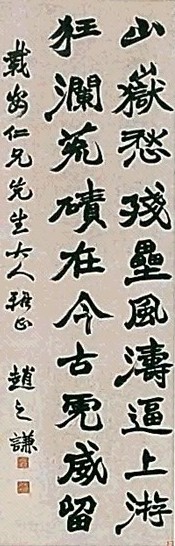 山嶽愁殘壘風濤逼上游
狂瀾荒磧在今古虎威留
仁兄先生大人雅正 趙之謙